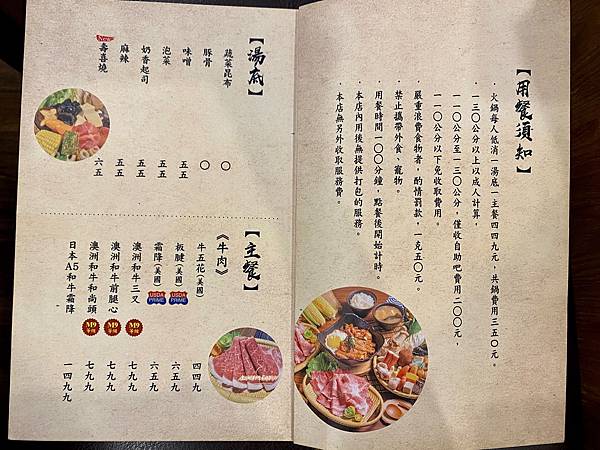 【用餐須知】
·火鍋每人低消一湯底一主餐四四九元，共鍋費用三五〇元。
·一三〇公分以上以成人計算，
一一〇公分至一三〇公分，僅收自助吧費用二〇〇元，
一一〇公分以下免收取費用。
·嚴重浪費食物者，酌情罰款，一克五〇元。
·禁止攜帶外食、寵物。
·用餐時間一〇〇分鐘，點餐後開始計時。
·本店內用後無提供打包的服務。
·本店無另外收取服務費。
【湯底】
蔬菜昆布 〇
豚骨 〇
味噌 五五
泡菜 五五
奶香起司 五五
麻辣 五五
New 壽喜燒 六五
【主餐】
《牛肉》
牛五花(美國) 四四九
板腱(美國) USDA PRIME 六五九
霜降(美國) USDA PRIME 六五九
澳洲和牛三叉 M9等級 七九九
澳洲和牛前腿心 M9等級 七九九
澳洲和牛和尚頭 M9等級 七九九
日本A5和牛霜降 一四九九